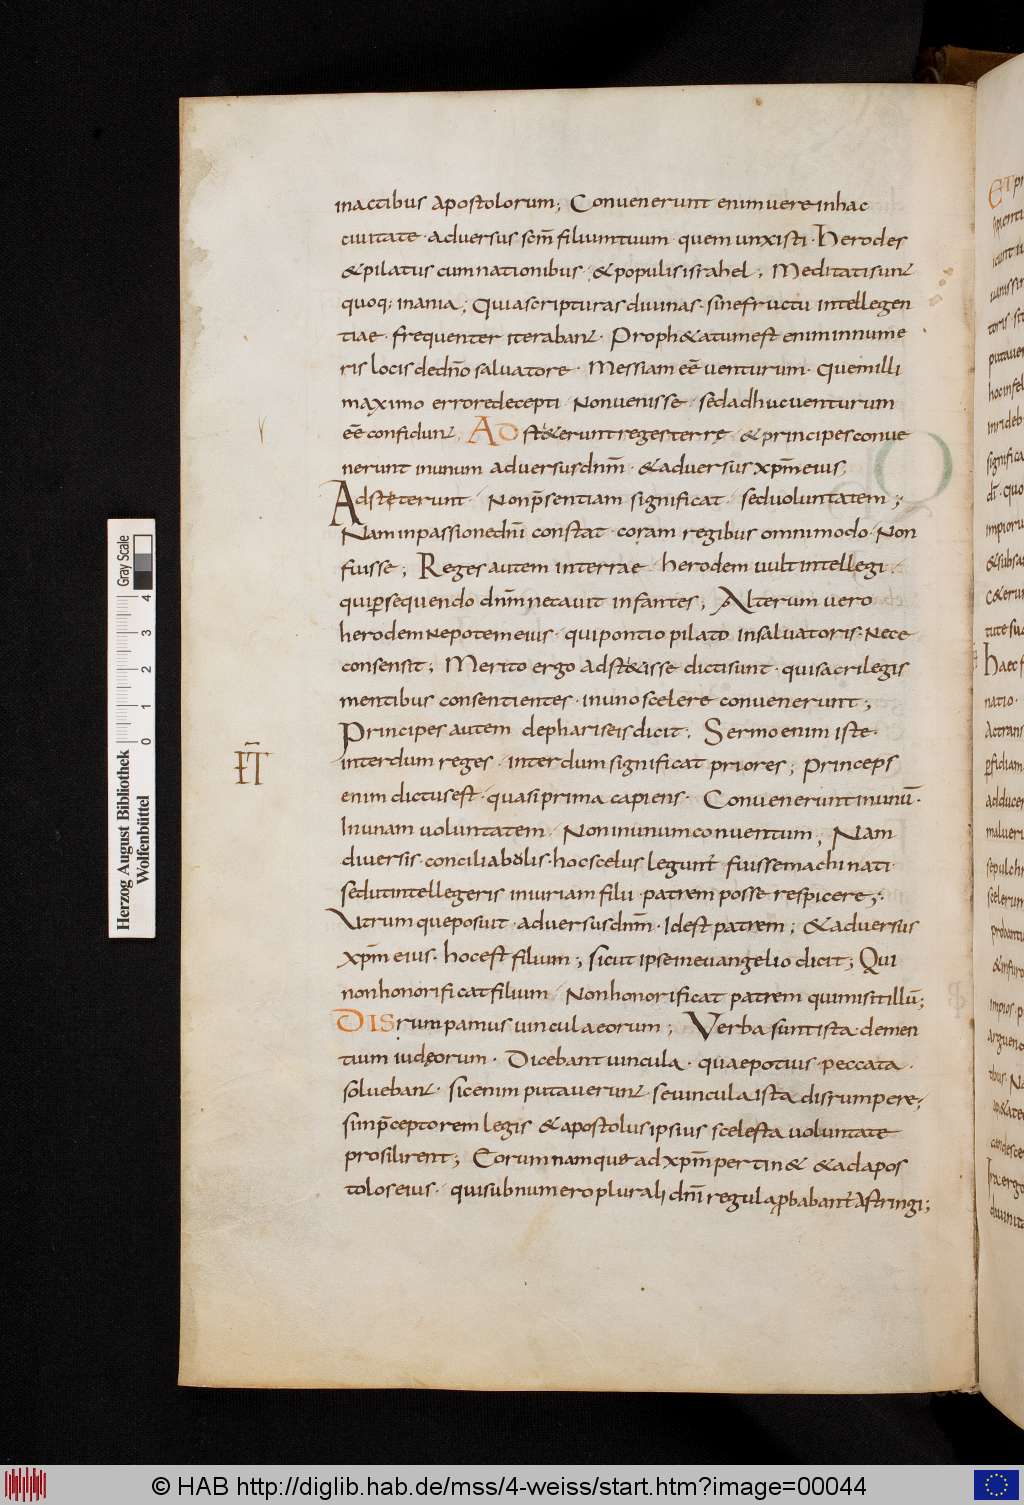 in actibus apostolorum; Convenerunt enim vere in hac
civitate · adversus scm̄ filium tuum · quem unxisti · herodes
& pilatus cum nationibus · & populis israhel; Meditati sunt
quoq; inania; Quia scripturas divinas · sine fructu intellegen
tiae · frequenter iterabant · Proph&atum est enim innume
ris locis de dn̄o salvatore · Messiam eē venturum · quem illi
maximo errore decepti · Non venisse · sed adhuc venturum
eē confidunt; ADst&erunt reges terrę · & principes conve
nerunt in unum adversus dnm̄ · & adversus xpm̄ eius;
Adsteterunt · Non p̄sentiam significat · sed voluntatem;
Nam in passione dnī constat · coram regibus omnimodo · Non
fuisse; Reges autem in terrae · herodem vult intellegi ·
qui persequendo dnm̄ necavit infantes; Alterum vero
herodem nepotem eius · qui pontio pilato in salvatoris · Nece
consensit; Merito ergo adst&isse dicti sunt · qui sacrilegis
mentibus consentientes · in uno scelere convenerunt;
Principes autem de phariseis dicit; Sermo enim iste ·
interdum reges · interdum significat priores; Princeps
enim dictus est · quasi prima capiens · Convenerunt in unū ·
In unam voluntatem · Non in unum conventum; Nam
diversis · conciliabolis · hoc scelus legunt fuisse machinati ·
sed ut intellegeris iniuriam filii · patrem posse respicere;
Utrumque posuit · adversus dnm̄ · Id est patrem; & adversus
xpm̄ eius · hoc est filium; sicut ipse in evangelio dicit; Qui
non honorificat filium · Non honorificat patrem qui misit illū;
DISrumpamus vincula eorum; Verba sunt ista demen
tium iudęorum · Dicebant vincula · quae potius · peccata ·
solvebant · sic enim putaverunt se vincula ista disrumpere;
sin p̄ceptorem legis & apostolus ipsius scelesta voluntate
prosilirent; Eorum namque ad xpm̄ pertin& & ad apos
tolos eius · qui sub numero plurali dnī regula p̱babant astringi;
Herzog August Bibliothek
Wolfenbüttel
0 1 2 3 4
Gray Scale
© HAB http://diglib.hab.de/mss/4-weiss/start.htm?image=00044